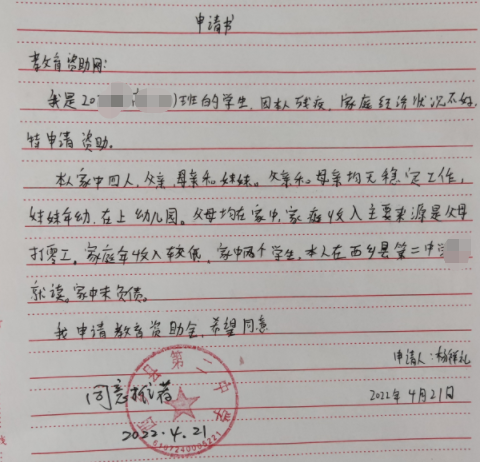 申请书
孝教育资助网:
我是20 班的学生,因本人残疾,家庭经济状况不好,
特申请资助。
本人家中四人,父亲、母亲和妹妹。父亲和母亲均无稳定工作,
妹妹年幼,在上幼儿园。父母均在家中,家庭收入主要来源是父母
打零工。家庭年收入较低,家中两个学生,本人在西乡县第二中学
就读。家中未负债。
我申请教育资助金,希望同意
申请人:杨
同意推荐
2022年4月21日
2022.4.21
第二中学
6107240005221